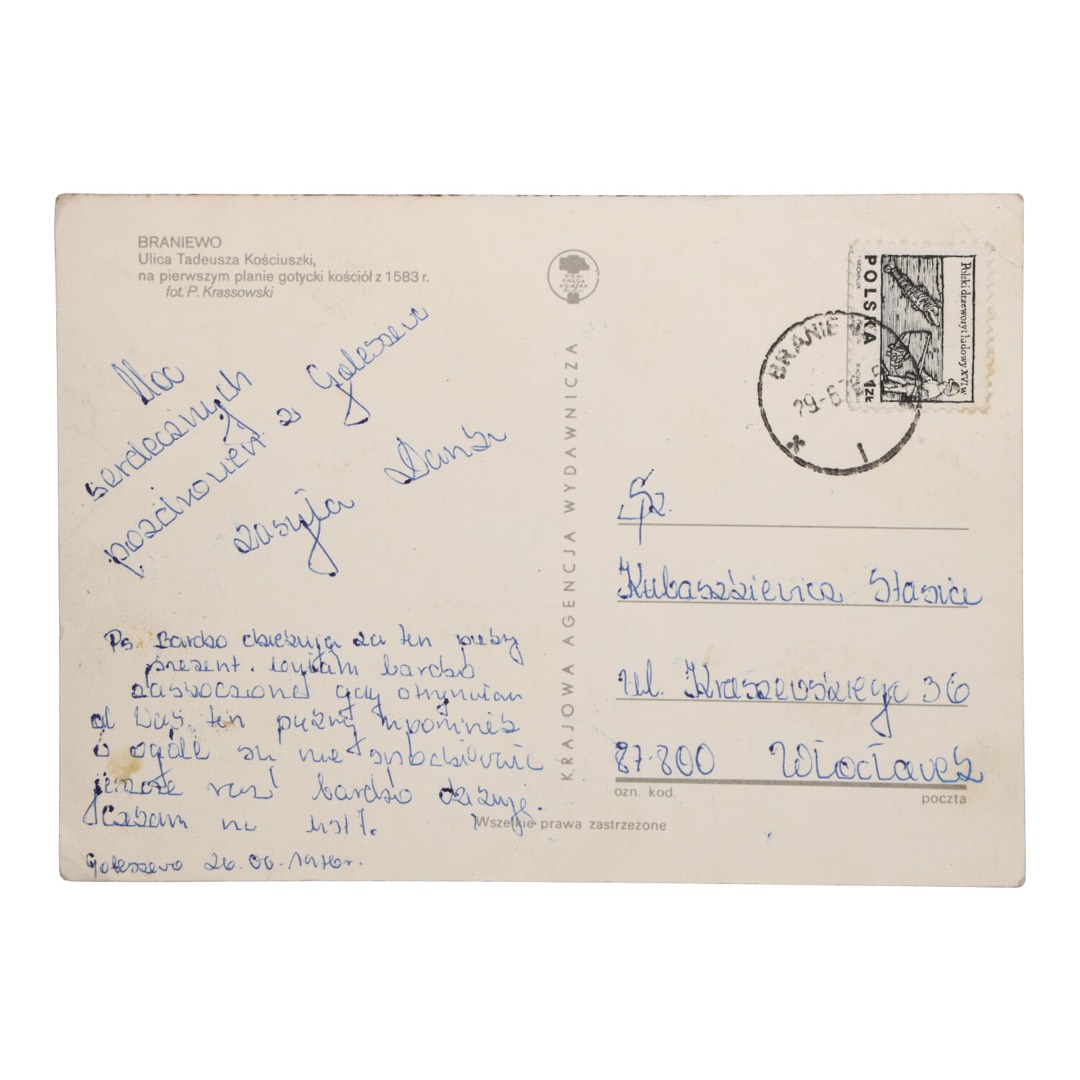 BRANIEWO
Ulica Tadeusza Kościuszki,
na pierwszym planie gotycki kościół z 1583 r.
fot. P. Krassowski
Moc
serdecznych
pozdrowień z Gołeszewa
zasyła Danka
Ps. Bardzo dziękuję za ten piękny
prezent. byłam bardzo
zaskoczona gdy otrzymałam
od Was ten piękny upominek
w ogóle się nie spodziewałam
jeszcze raz bardzo dziękuję.
Czekam na list.
26.06.1978r.
KRAJOWA AGENCJA WYDAWNICZA
Wszelkie prawa zastrzeżone
POLSKA
1ZŁ
Polski drzeworyt ludowy XVI w.
BRANIEWO
29-6
1
Sz.
Kubaszkiewicz Stasia
ul. Kraszewskiego 36
87-800 Włocławek
ozn. kod.
poczta